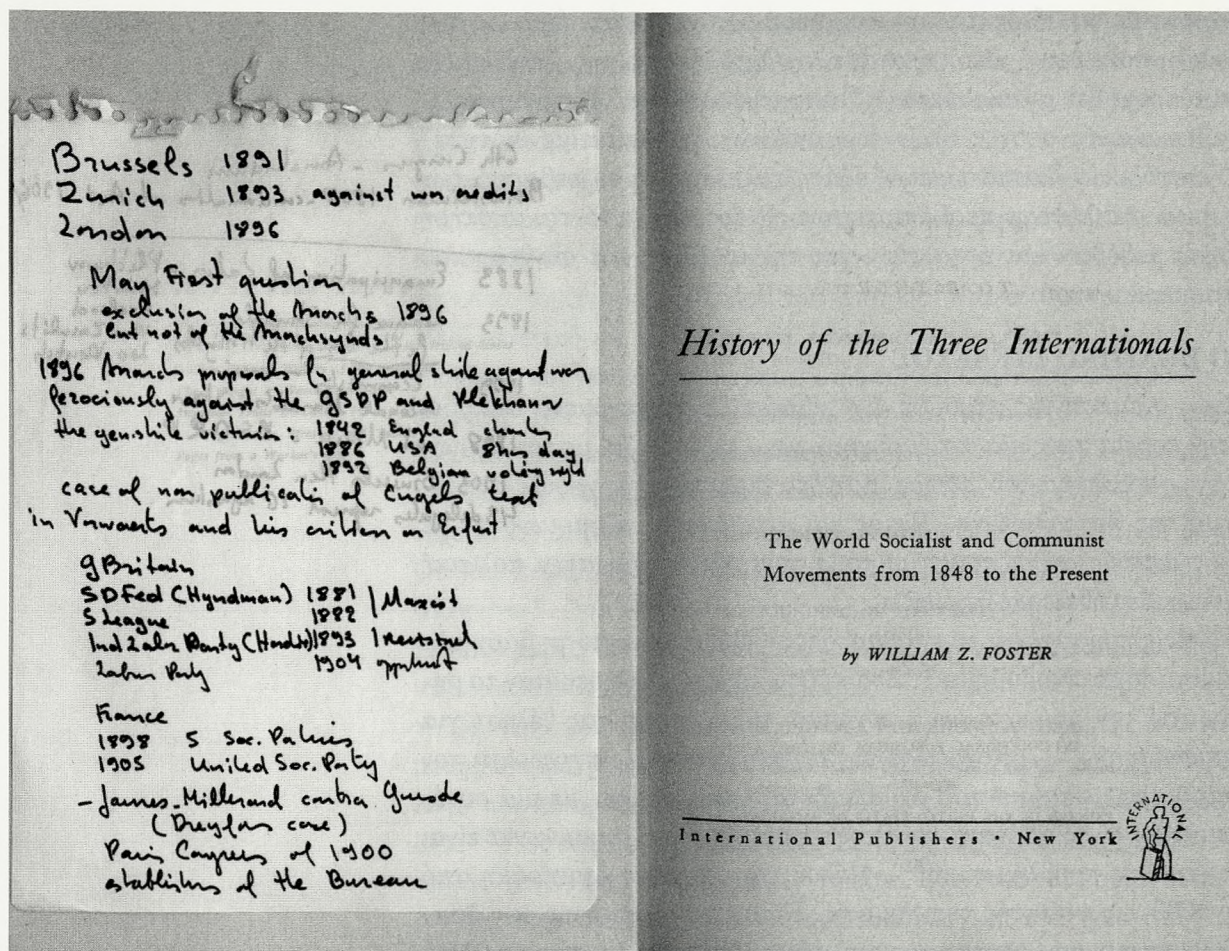 Brussels 1891
Zurich 1893 against war credits
London 1896
May First question
exclusion of the Anarchs 1896
but not of the Anarchsynds
1896 Anarchs proposals for general strike against war
ferociously against the GSDP and Plekhanov
the genstrike victories: 1842 England
1886 USA 8hrs day
1892 Belgian voting right
case of non publication of Engels text
in Vorwaerts and his critism on Erfurt
G Britain
SDFed (Hyndman) 1881 | Marxist
S League 1882
Ind Labr Party (Hardie) 1893 |
Labur Party 1904
France
1898 5 Soc. Parties
1905 United Soc. Party
– Jaures-Millerand contra Guesde
(Dreyfus case)
Paris Congress of 1900
establishm of the Bureau
History of the Three Internationals
The World Socialist and Communist
Movements from 1848 to the Present
by WILLIAM Z. FOSTER
International Publishers · New York
INTERNATIONAL